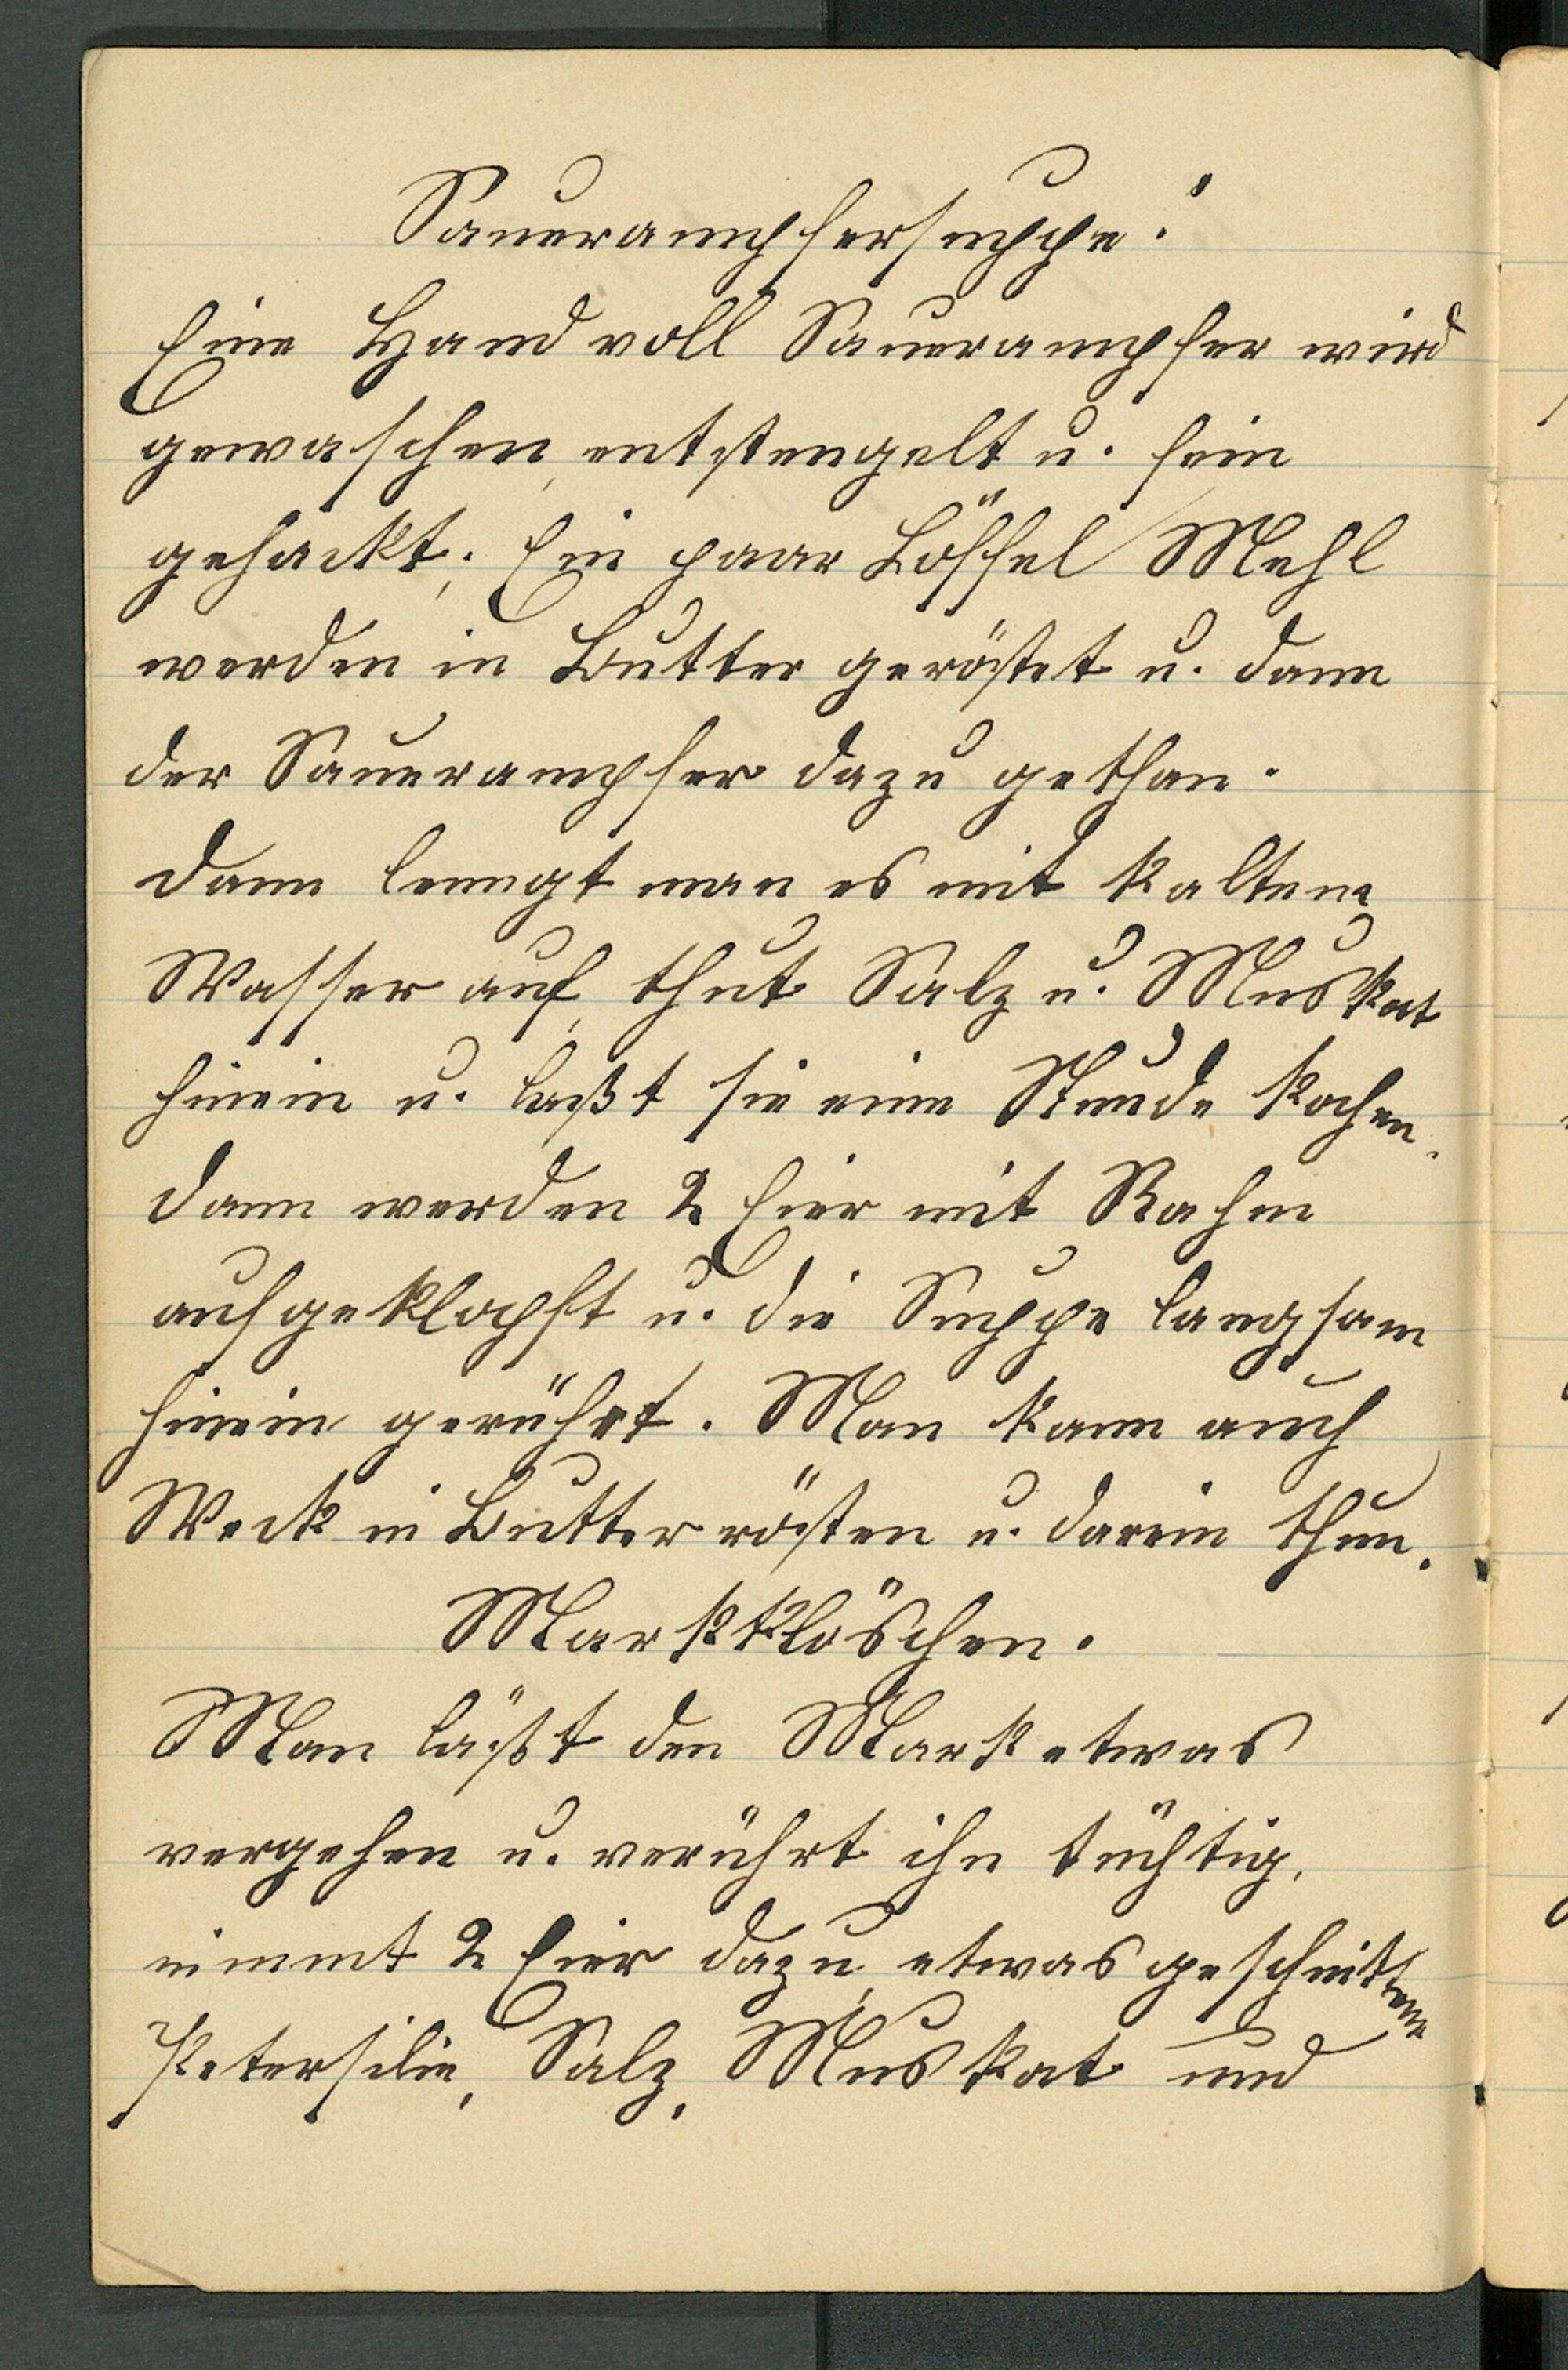 Sauerampfersuppe.
Eine Hand voll Sauerampfer wird
gewaschen, entstengelt u. fein
gehackt; Ein paar Löffel Mehl
werden in Butter geröstet u. dann
der Sauerampfer dazu gethan.
Dann lengt man es mit kaltem
Wasser auf, thut Salz u. Muskat
hinein u. laßt sie eine Stunde kochen.
Dann werden 2 Eier mit Rahm
aufgeklopft u. die Suppe langsam
hinein gerührt. Man kann auch
Weck in Butter rösten u. darein thun.
Markklöschen.
Man läßt den Mark etwas
vergehen u. verührt ihn tüchtig,
nimmt 2 Eier dazu, etwas geschnittene
Petersilie, Salz, Muskat und